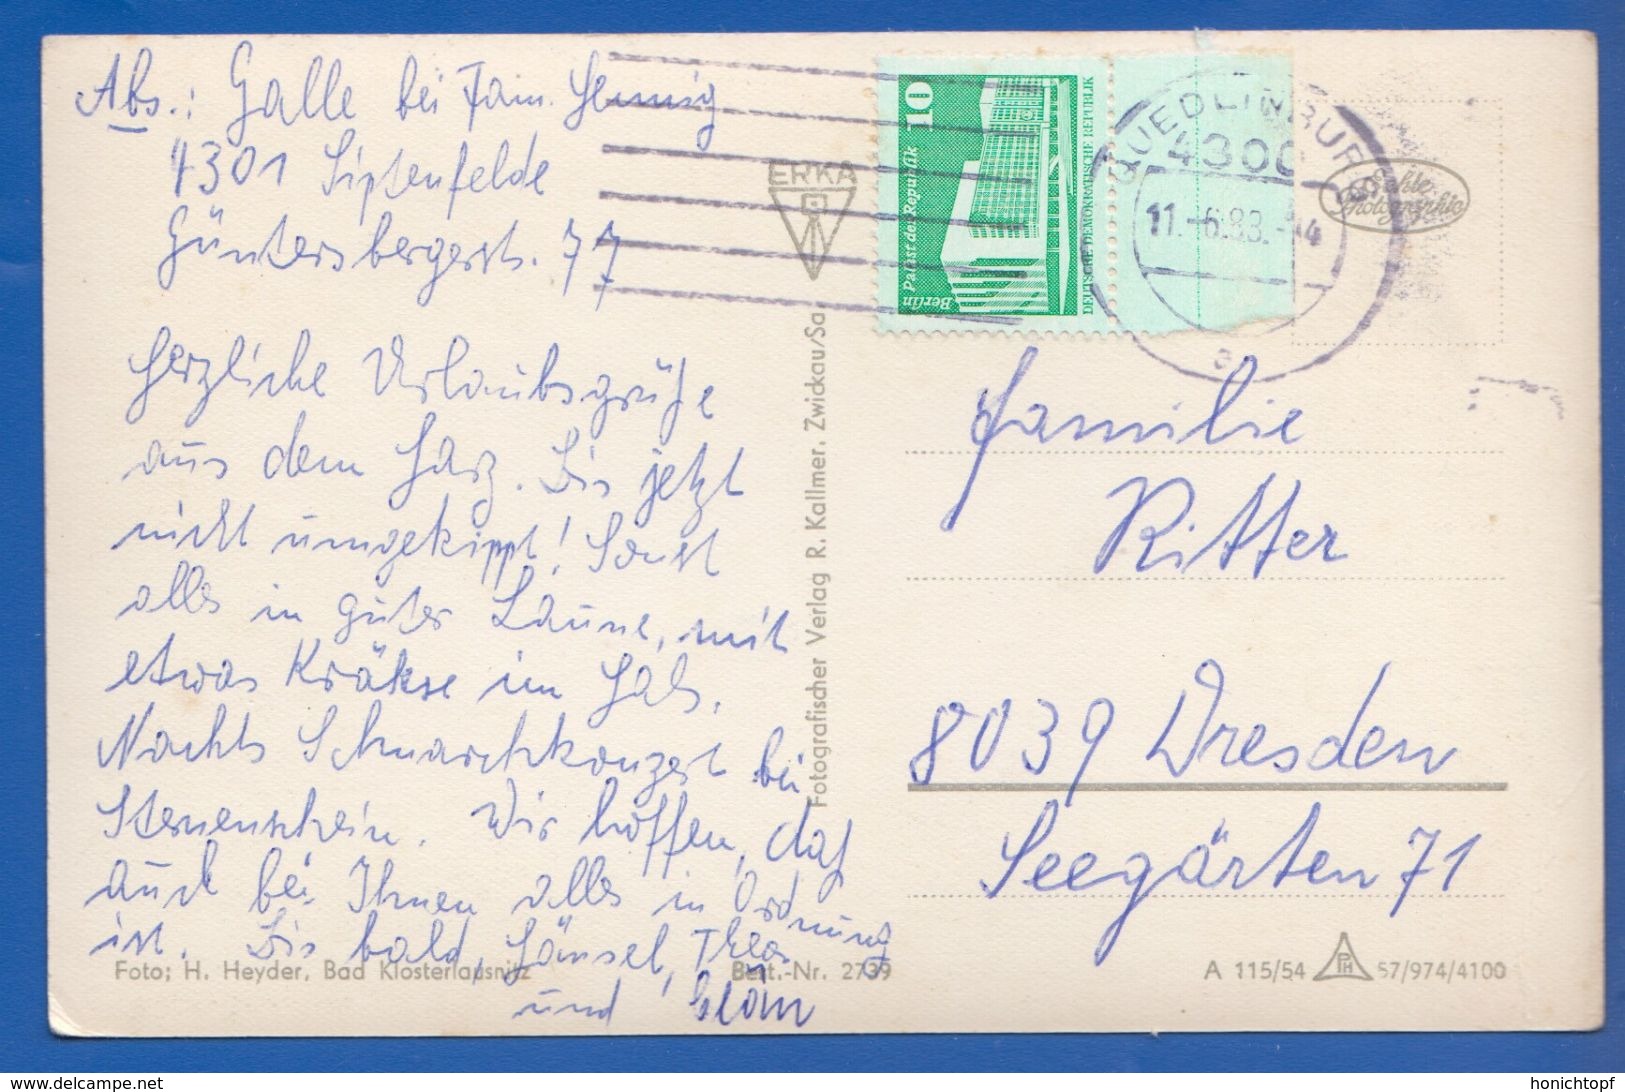 Abs.: Galle bei Fam. Hennig
4301 Siptenfelde
Güntersbergerstr. 77
Herzliche Urlaubsgrüße
aus dem Harz. Bis jetzt
nicht umgekippt! Sonst
alles in guter Laune, mit
etwas Kräkse im Hals.
Nachts Schnarchkonzert bei
Sternenschein. Wir hoffen, daß
auch bei Ihnen alles in Ordnung
ist. Bis bald, Hänsel, Thea
und
Foto: H. Heyder, Bad Klosterlausnitz
Best.-Nr. 2739
ERKA
Fotografischer Verlag R. Kallmer, Zwickau/Sa.
10
Palast der Republik
Berlin
DEUTSCHE DEMOKRATISCHE REPUBLIK
QUEDLINBURG
4300
11.-6.83.-14
a
Echte
Photographie
Familie
Ritter
8039 Dresden
Seegärten 71
A 115/54 PH 57/974/4100
honichtopf
delcampe.net